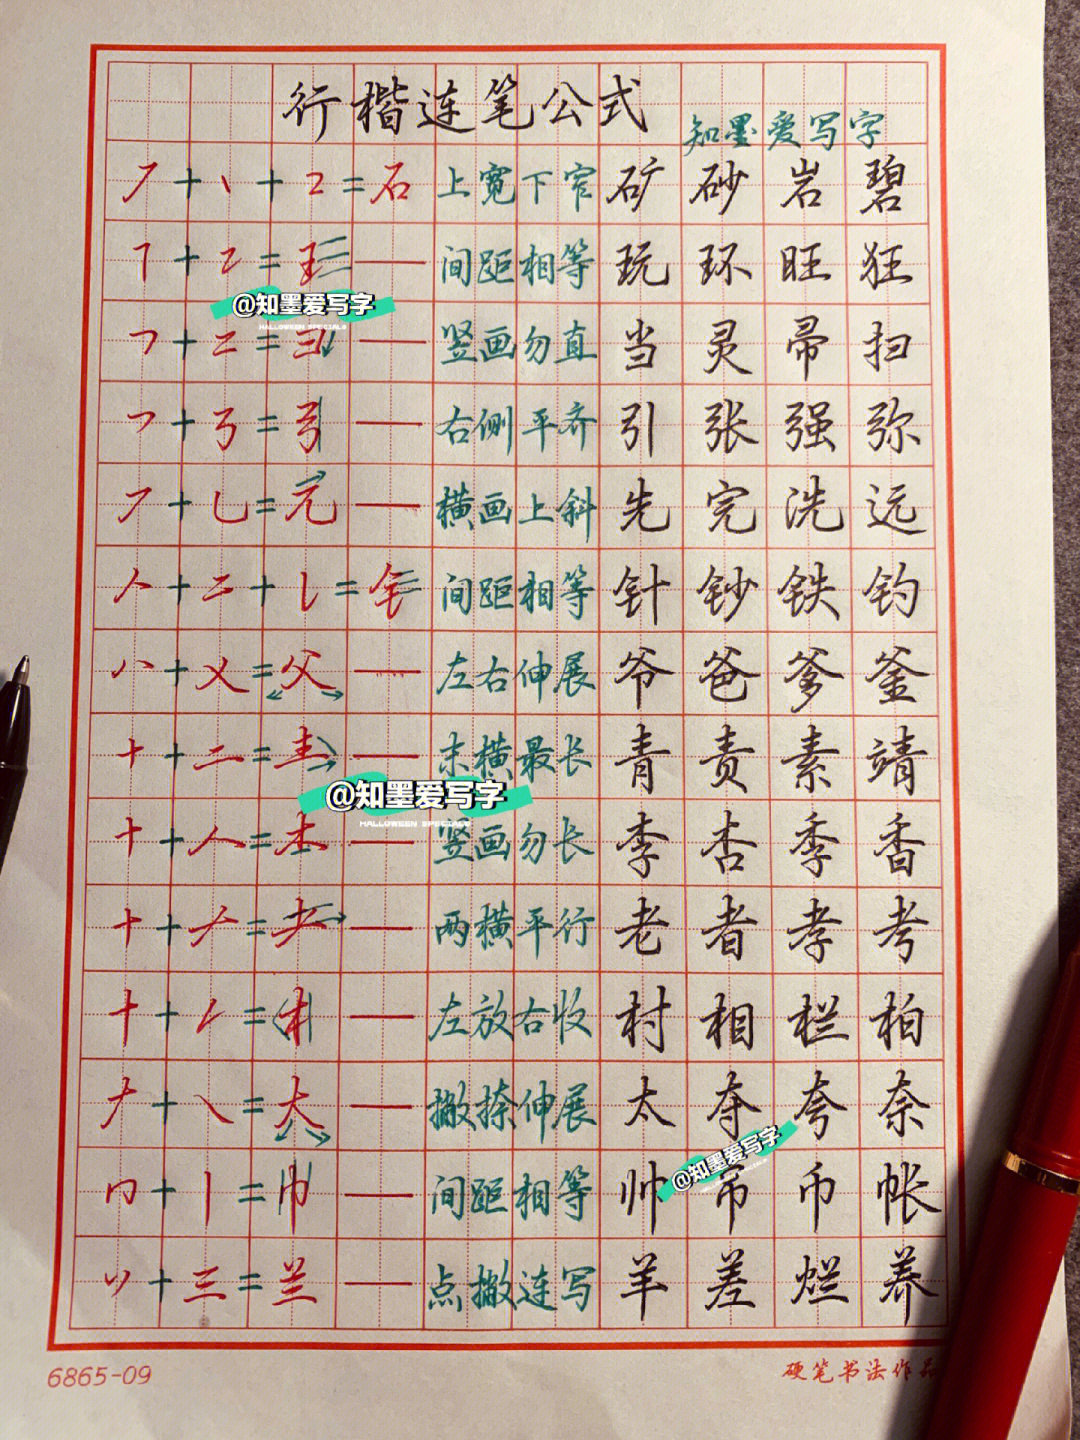 行楷连笔公式
知墨爱写字
㇇+丶+2=石 上宽下窄 矿 砂 岩 碧
㇕+2=王 — 间距相等 玩 环 旺 狂
@知墨爱写字
HALLOWEEN SPECIALS
㇇+二=彐 — 竖画勿直 当 灵 帚 扫
㇇+㇉=弓 — 右侧平齐 引 张 强 弥
丆+乚=元 — 横画上斜 先 完 洗 远
𠂉+二+乚=钅 间距相等 针 钞 铁 钓
八+乂=父 — 左右伸展 爷 爸 爹 釜
十+二=龶 — 末横最长 青 责 素 靖
@知墨爱写字
HALLOWEEN SPECIALS
十+人=木 — 竖画勿长 李 杏 季 香
十+𠂇=耂 — 两横平行 老 者 孝 考
十+㇀=木 — 左放右收 村 相 栏 柏
𠂇+㇏=大 — 撇捺伸展 太 夺 夸 奈
@知墨爱写字
冂+丨=巾 — 间距相等 帅 帘 币 帐
丷+三=兰 — 点撇连写 羊 差 烂 养
6865-09
硬笔书法作品